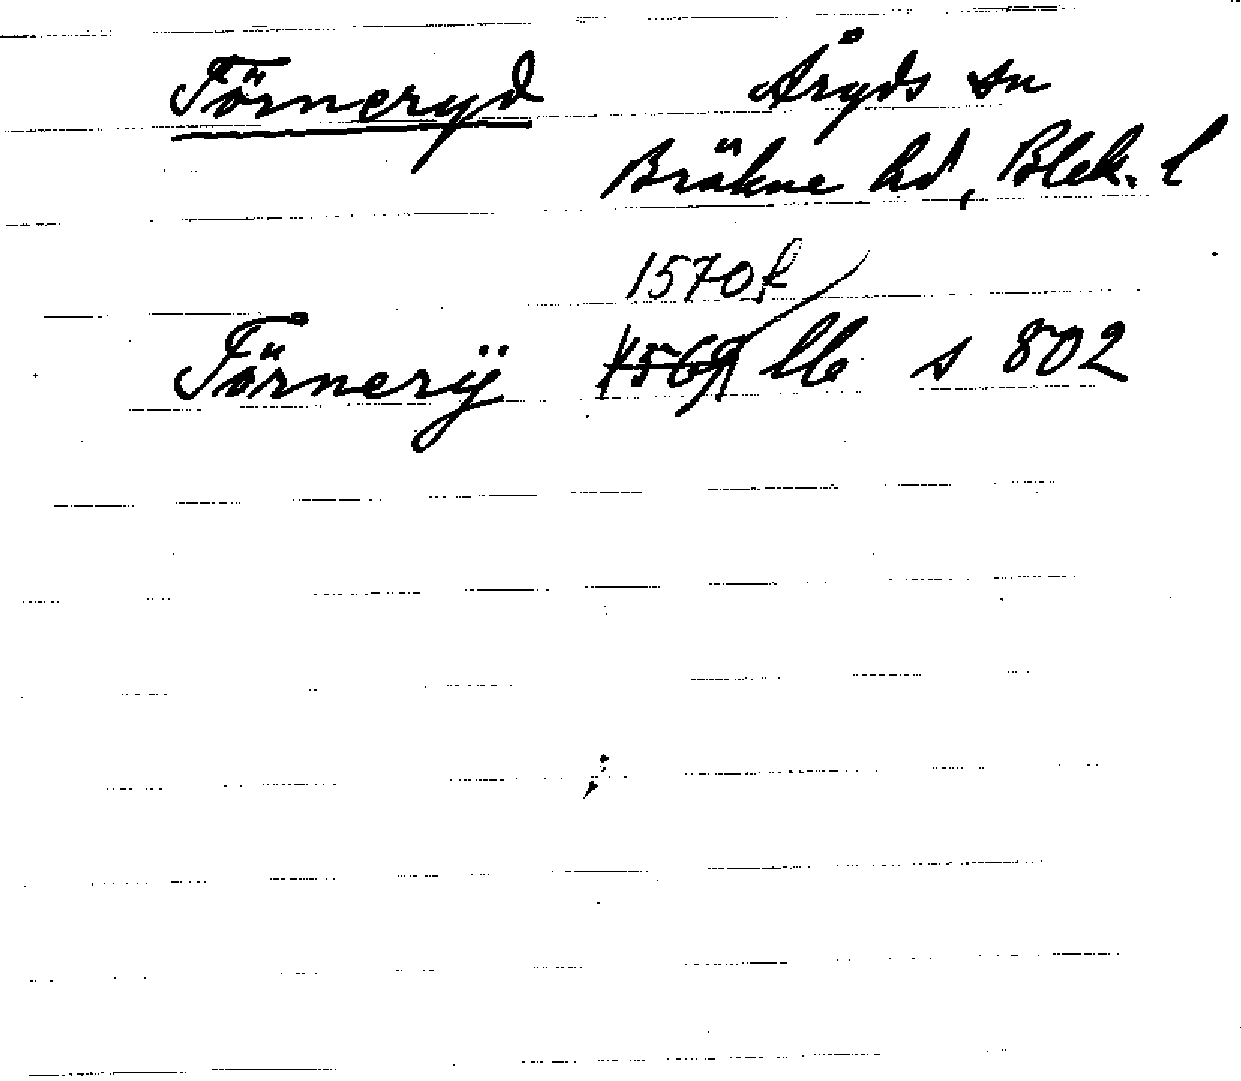 Törneryd Åryds sn
Bräkne hd, Blek. l
1570 f
Törnerÿ 1569 llb s 802